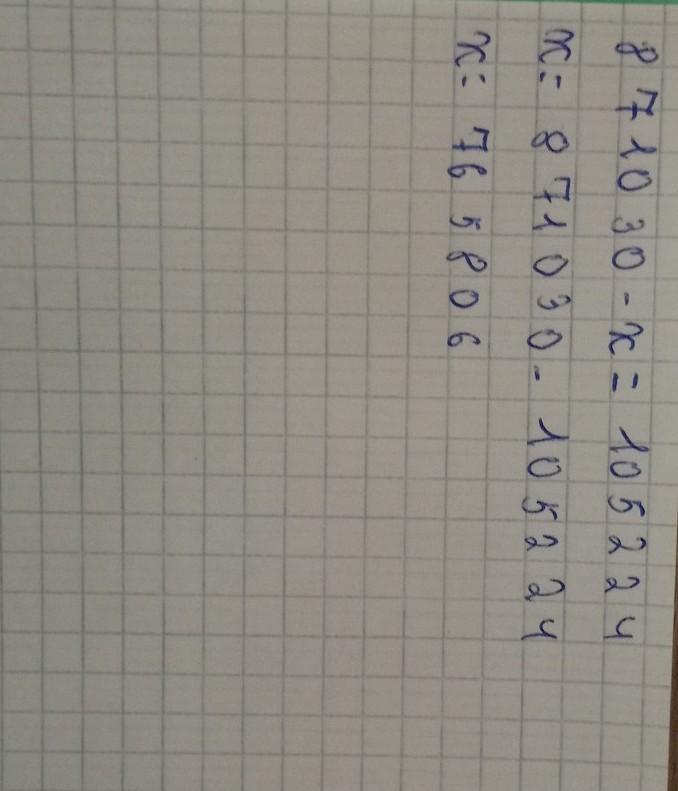 871030-x=105224
x=871030-105224
x=765806